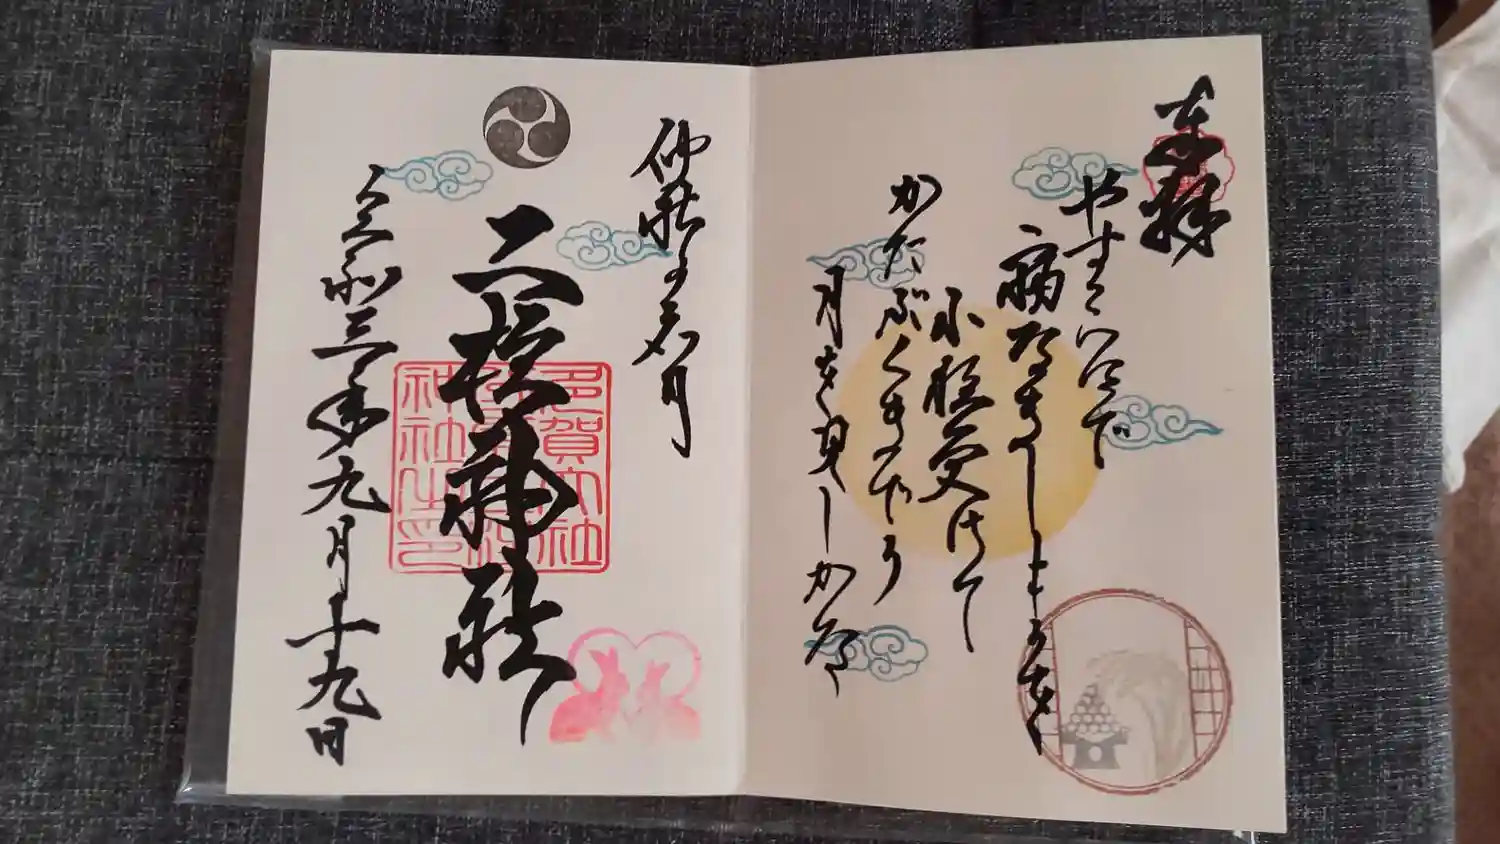 奉拝
やすらはで
寝なましものを
小夜更けて
かたぶくまでの
月を見しかな
仲秋の名月
二柱神社
多賀大社
神社之印
令和三年九月十九日